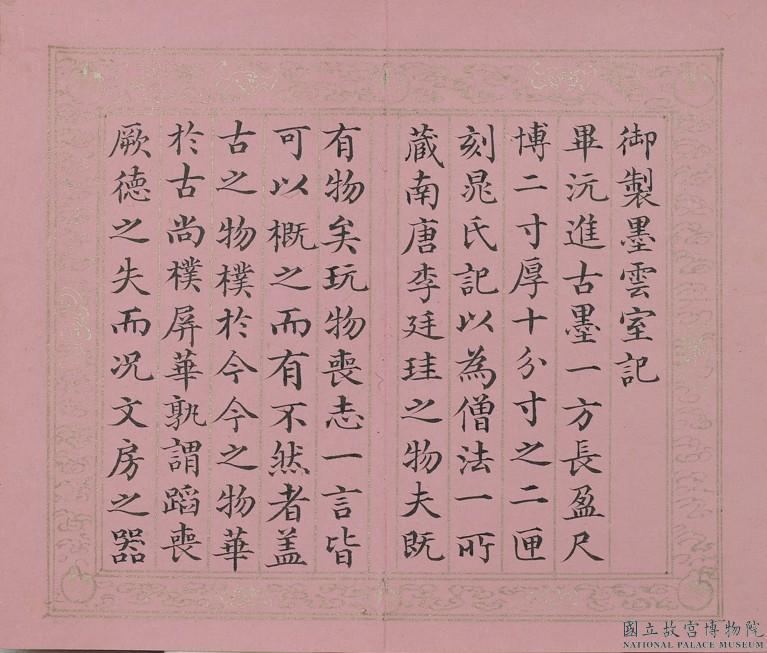 御製墨雲室記
畢沅進古墨一方長盈尺
博二寸厚十分寸之二匣
刻晁氏記以為僧法一所
蔵南唐李廷珪之物夫既
有物矣玩物喪志一言皆
可以概之而有不然者盖
古之物樸於今今之物華
於古尚樸屏華孰謂蹈喪
厥德之失而况文房之器
國立故宮博物院
NATIONAL PALACE MUSEUM